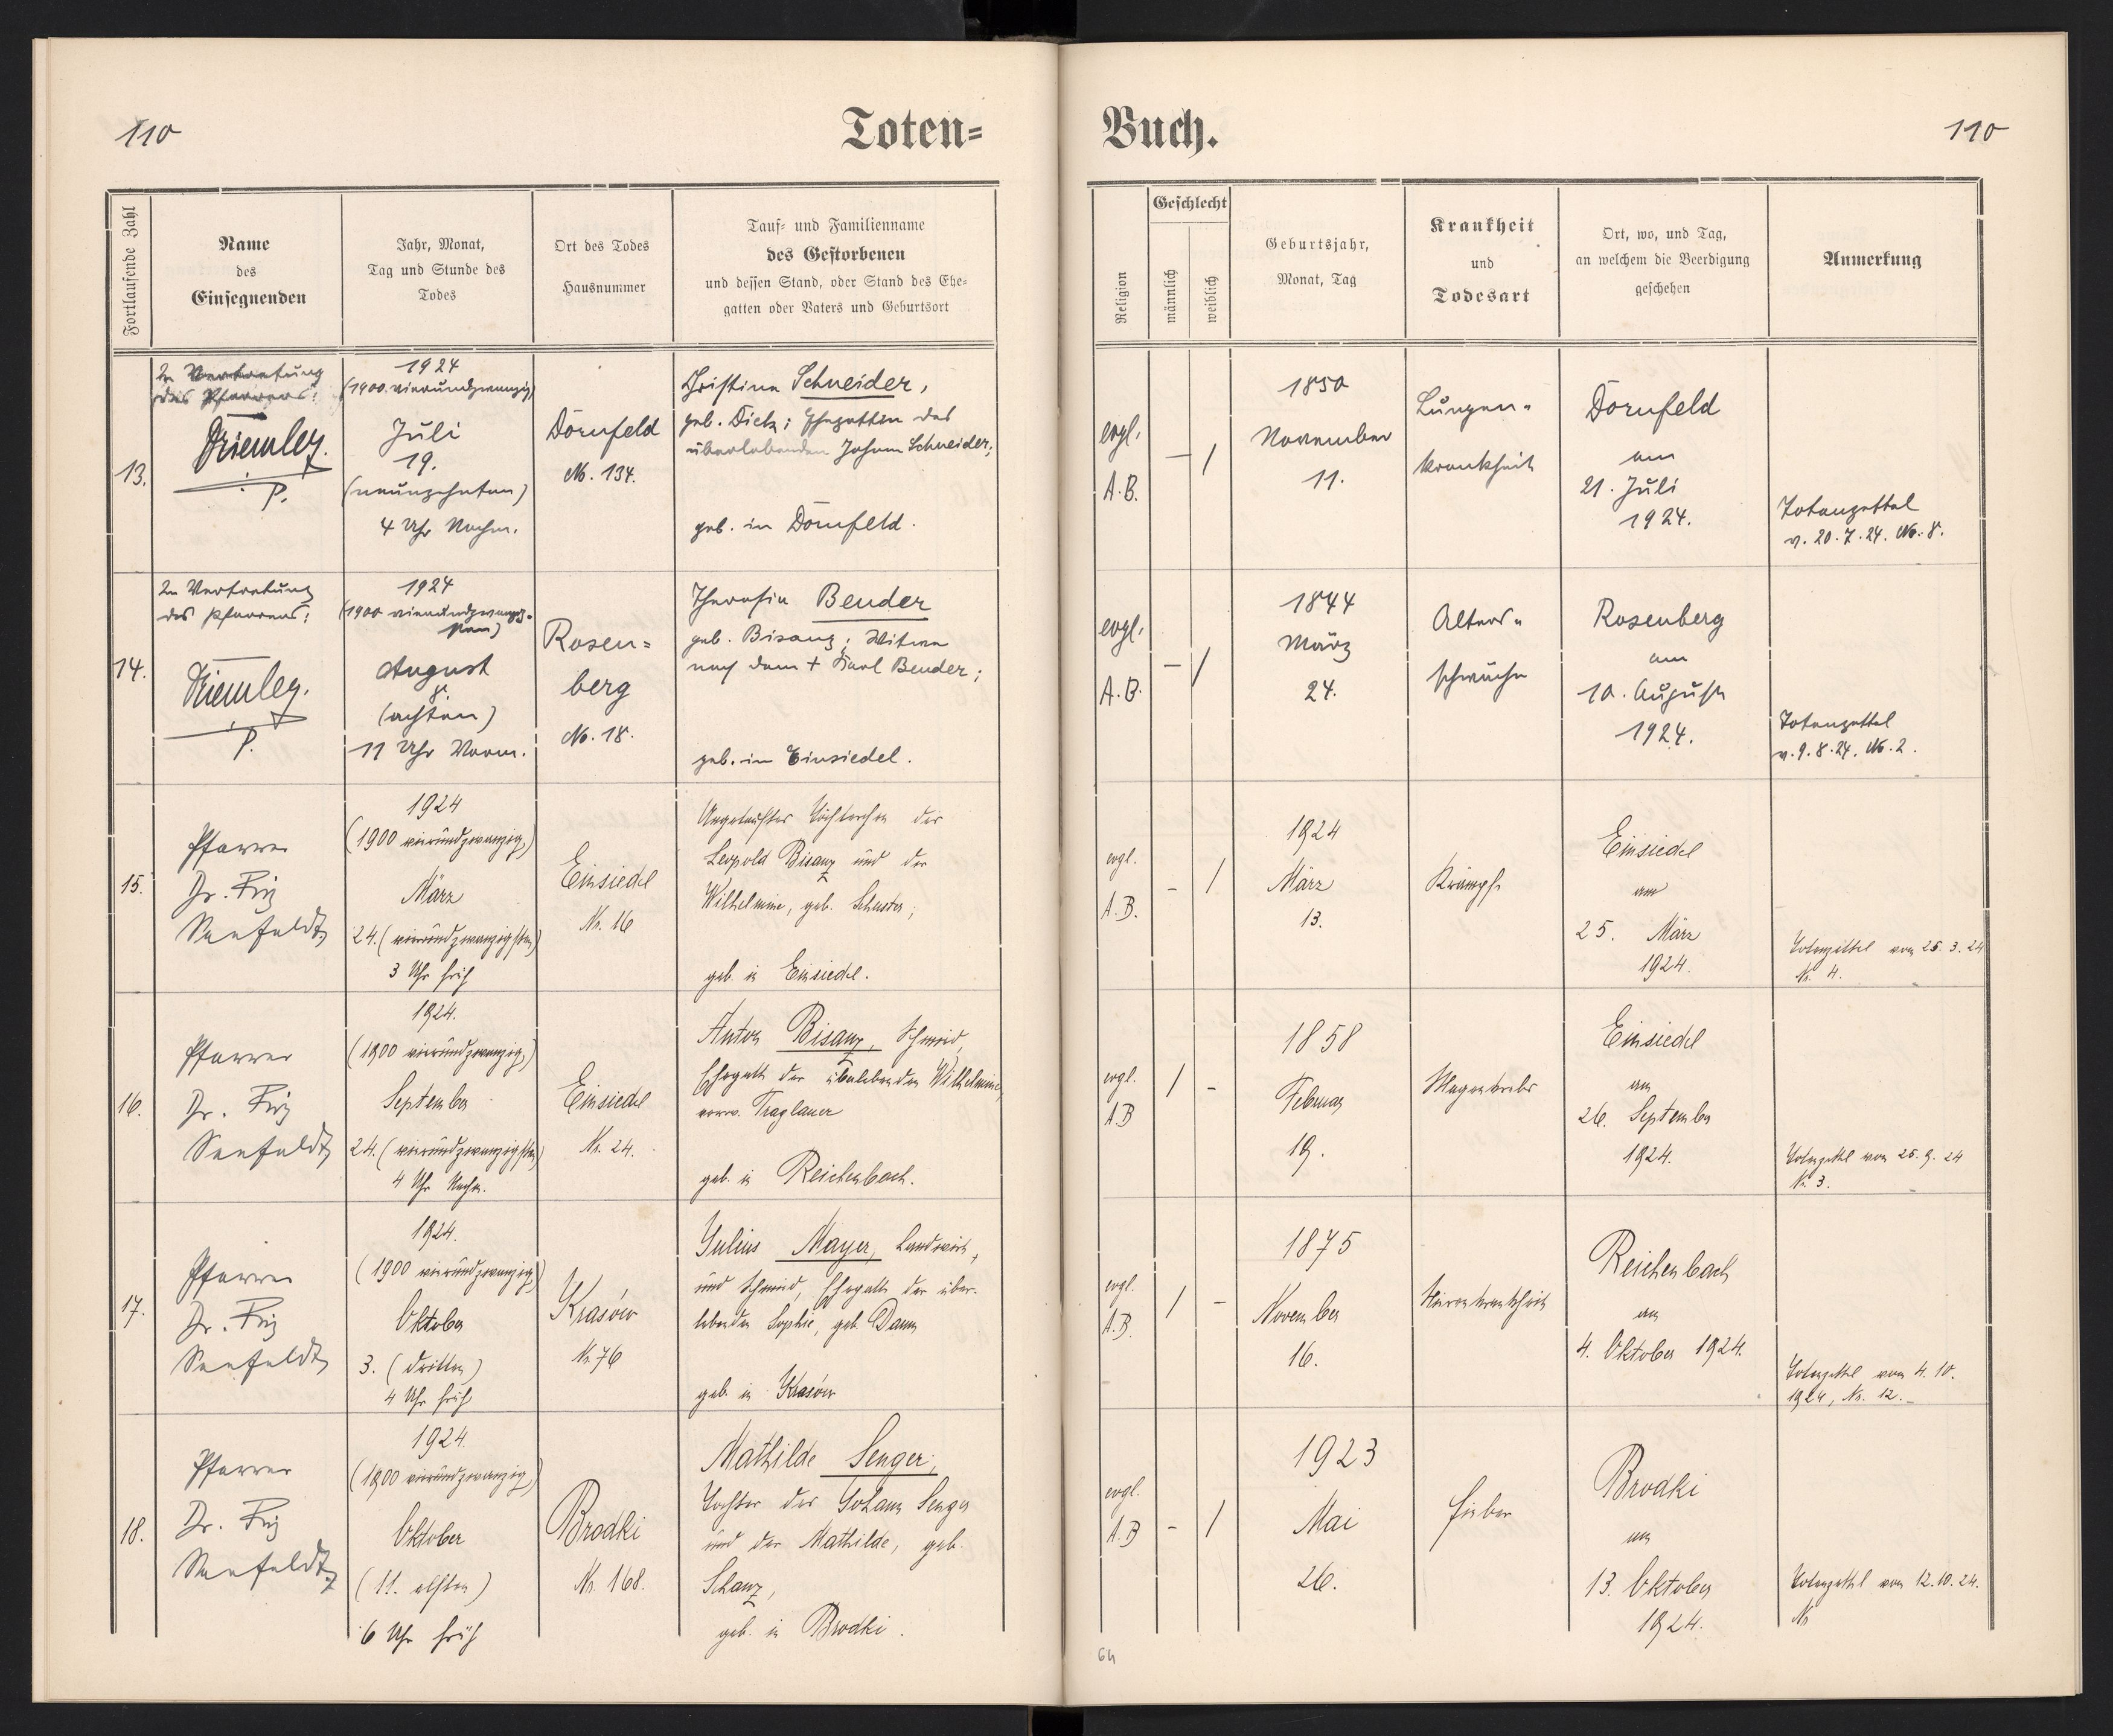 110
Toten=
Buch.
110
Fortlaufende Zahl
Name
des
Einsegnenden
Jahr, Monat,
Tag und Stunde des
Todes
Ort des Todes
Hausnummer
Tauf= und Familienname
des Gestorbenen
und dessen Stand, oder Stand des Ehe=
gatten oder Vaters und Geburtsort
Religion
Geschlecht
männlich
weiblich
Geburtsjahr,
Monat, Tag
Krankheit
und
Todesart
Ort, wo, und Tag,
an welchem die Beerdigung
geschehen
Anmerkung
13.
In Vertretung
des Pfarrers:
p.
1924
(1900 vierundzwanzig)
Juli
19.
(neunzehnten)
4 Uhr Nachm.
Dornfeld
No. 134.
Christine Schneider,
geb. Diek; Ehegattin des
überlebenden Johann Schneider;
geb. in Dornfeld.
evgl.
A.B.
— /
1850
November
11.
Lungen-
krankheit
Dornfeld
am
21. Juli
1924.
Totenzettel
v. 20.7.24. No. 8.
14.
In Vertretung
des Pfarrers:
p.
1924
August
8.
(achten)
11 Uhr Vorm.
Rosen=
berg
No. 18.
Theresia Bender
geb. Bisanz; Witwe
nach dem + Karl Bender;
geb. in Einsiedel.
evgl.
A.B.
— /
1844
März
24.
Alters-
schwäche
Rosenberg
am
10. August
1924.
Totenzettel
v. 9.8.24. No. 2.
15.
Pfarrer
Dr. Friz
Seefeldt
1924
(1900 vierundzwanzig)
März
24. (vierundzwanzigsten)
3 Uhr früh
Einsiedel
Nr. 16
Ungetauftes Töchterchen des
Leopold Bisanz und der
Wilhelmine, geb. Schuster;
geb. in Einsiedel.
evgl.
A.B.
- /
1924
März
13.
Krämpfe
Einsiedel
am
25. März
1924.
Totenzettel vom 25.3.24
Nr. 4.
16.
Pfarrer
Dr. Friz
Seefeldt
1924.
(1900 vierundzwanzig)
September
24. (vierundzwanzigsten)
4 Uhr Nachm.
Einsiedel
Nr. 24.
Anton Bisanz, Schmied,
Ehegatte der überlebenden Wilhelmine,
verw. Traglauer
geb. in Reichenbach.
evgl.
A.B
/ -
1858
Februar
19.
Magenkrebs
Einsiedel
am
26. September
1924.
Totenzettel vom 25.9.24
Nr. 3.
17.
Pfarrer
Dr. Friz
Seefeldt
1924.
(1900 vierundzwanzig)
Oktober
3. (dritten)
4 Uhr früh
Krasów
Nr. 76
Julius Mayer, Landwirt,
und Schmied, Ehegatte der über-
lebenden Sophie, geb. Damm
geb. in Krasów
evgl.
A.B.
/ -
1875
November
16.
Nierenkrankheit
Reichenbach
am
4. Oktober 1924.
Totenzettel vom 4.10.
1924, Nr. 12.
18.
Pfarrer
Dr. Friz
Seefeldt
1924.
(1900 vierundzwanzig)
Oktober
(11. elften)
6 Uhr früh
Brodki
Nr. 168.
Mathilde Senger,
Tochter des Johann Senger
und der Mathilde, geb.
Schanz,
geb. in Brodki.
evgl.
A.B
- /
1923
Mai
26.
Fieber
Brodki
am
13. Oktober
1924.
Totenzettel vom 12.10.24.
Nr.
64